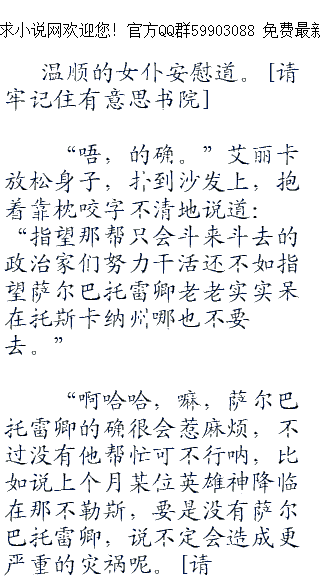 求小说网欢迎您！官方QQ群59903088 免费最新
温顺的女仆安慰道。[请
牢记住有意思书院]
“唔，的确。”艾丽卡
放松身子，扑到沙发上，抱
着靠枕咬字不清地说道：
“指望那帮只会斗来斗去的
政治家们努力干活还不如指
望萨尔巴托雷卿老老实实呆
在托斯卡纳州哪也不要
去。”
“啊哈哈，嘛，萨尔巴
托雷卿的确很会惹麻烦，不
过没有他帮忙可不行呐，比
如说上个月某位英雄神降临
在那不勒斯，要是没有萨尔
巴托雷卿，说不定会造成更
严重的灾祸呢。[请